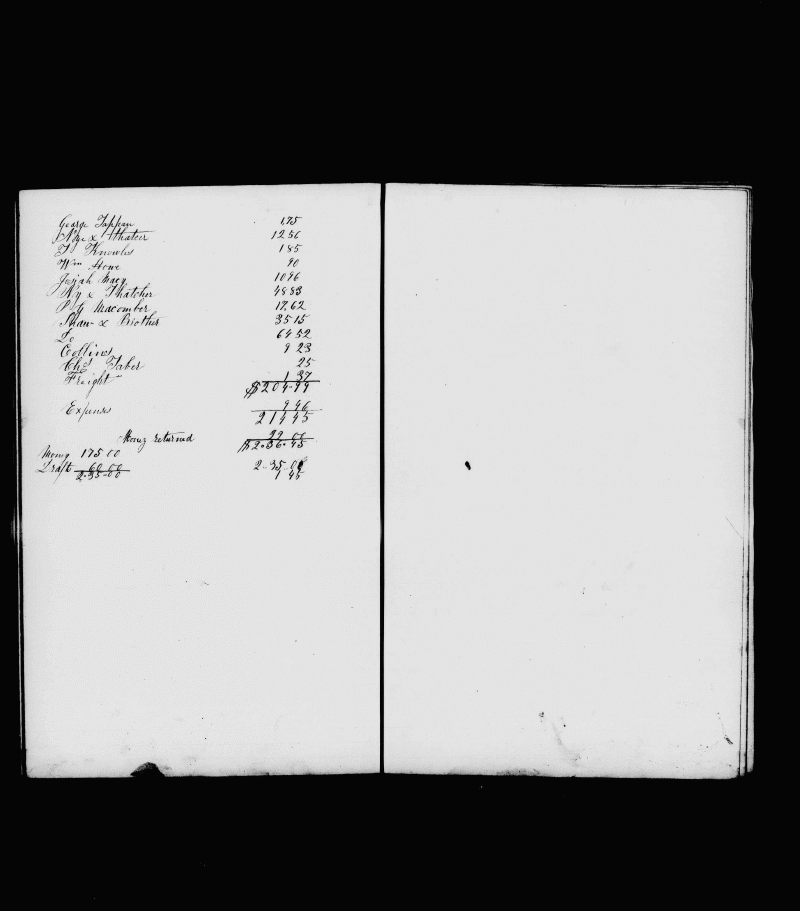 George Tappan 1.75
Nye & Thatcer 12 56
T Knowles 1 85
Wm Howe 90
Josiah Macy 10 96
Ny & Thatcher 48 83
P G Macomber 17.62
Shaw & Brother 35 15
Do 64 52
Collins 9 23
Chs Taber 25
Freight 1 37
$204.99
Expenses 9 46
214 45
Money returned 22 00
$2.36.45
Money 175 00
Draft 60 00 2.35.00
2.35.00 1 45